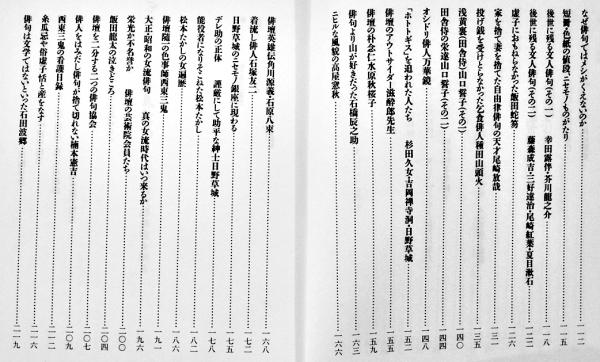 なぜ俳句ではメシがくえないのか……一一二
短冊・色紙の値段、ニセモノものがたり……一一五
後世に残る文人俳句(その一) 幸田露伴・芥川龍之介……一一八
後世に残る文人俳句(その二) 藤森成吉・三好達治・尾崎紅葉・夏目漱石……一二三
虚子におもねらなかった飯田蛇笏……一二八
家を捨て妻を捨てた自由律俳句の天才尾崎放哉……
投げ銭を受けとらなかった乞食俳人種田山頭火……一三五
浅黄裏(田舎侍)山口誓子(その一)……一四〇
田舎侍の栄達山口誓子(その二)……一四四
オシドリ俳人万華鏡……一四八
「ホトトギス」を追われた人たち 杉田久女・吉岡禅寺洞・日野草城……一五二
俳壇のアウトサイダー滋酔郎先生……
俳壇の朴念仁水原秋桜子……一五九
俳句より山が好きだった石橋辰之助……一六三
ニヒルな風貌の高屋窓秋……一六六
俳壇英雄伝角川源義・石原八束……一六八
着流し俳人石塚友二……
日野草城のニセモノ銀座に現わる……一七五
デレ助の正体 謹厳にして助平な紳士日野草城……一七八
能役者になりそこねた松本たかし……一八二
松本たかしの女遍歴……一八六
俳壇随一の色事師西東三鬼……
大正・昭和の女流俳句 真の女流時代はいつ来るか……一九六
栄光か不名誉か 俳壇の芸術院会員たち……二〇〇
飯田龍太の泣きどころ……二〇四
俳壇を二分する二つの俳句協会……二〇七
俳人をはみだし俳句が捨て切れない楠本憲吉……二〇九
西東三鬼の看護日録……二一二
糸瓜忌や俗虚子悟と産をなす……二一六
俳句は文学ではないといった石田波郷……二一九